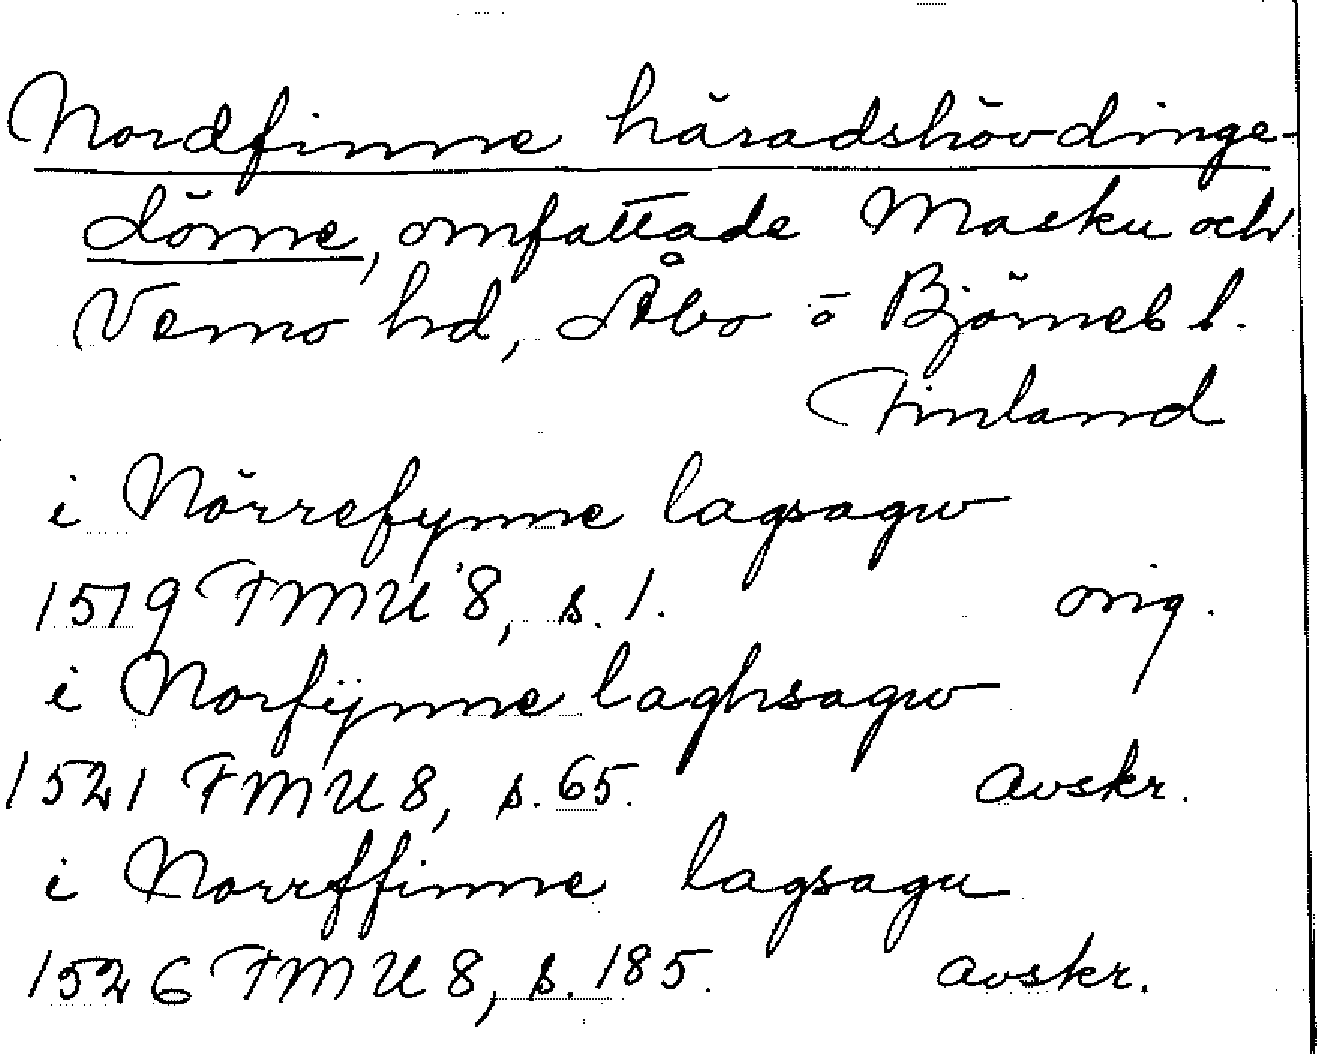 Nordfinne häradshövdinge-
döme, omfattade Masku och
Vemo hd, Åbo o Björneb l.
Finland
i Nörrefynne lagsagw
1519 FMU 8, s. 1. orig.
i Norfÿnne laghsagw
1521 FMU 8, s. 65. avskr.
i Norrffinne lagsagu
1526 FMU 8, s. 185. avskr.